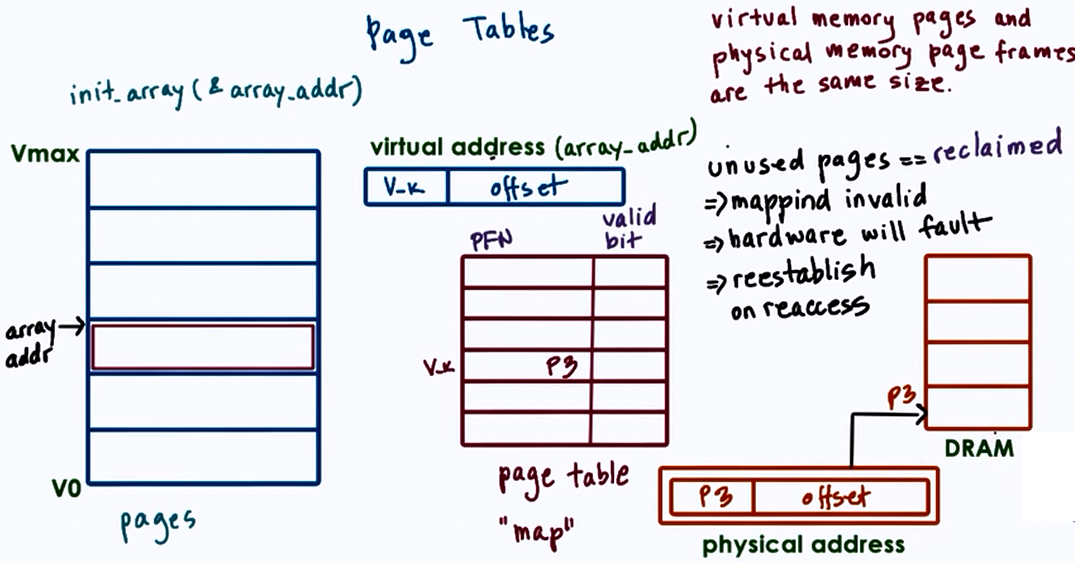 Page Tables
virtual memory pages and
physical memory page frames
are the same size.
init_array (& array_addr)
Vmax
array
addr
V0
pages
virtual address (array_addr)
V_k offset
PFN valid
bit
V_k P3
page table
"map"
unused pages == reclaimed
=> mappind invalid
=> hardware will fault
=> reestablish
on reaccess
P3
DRAM
P3 offset
physical address